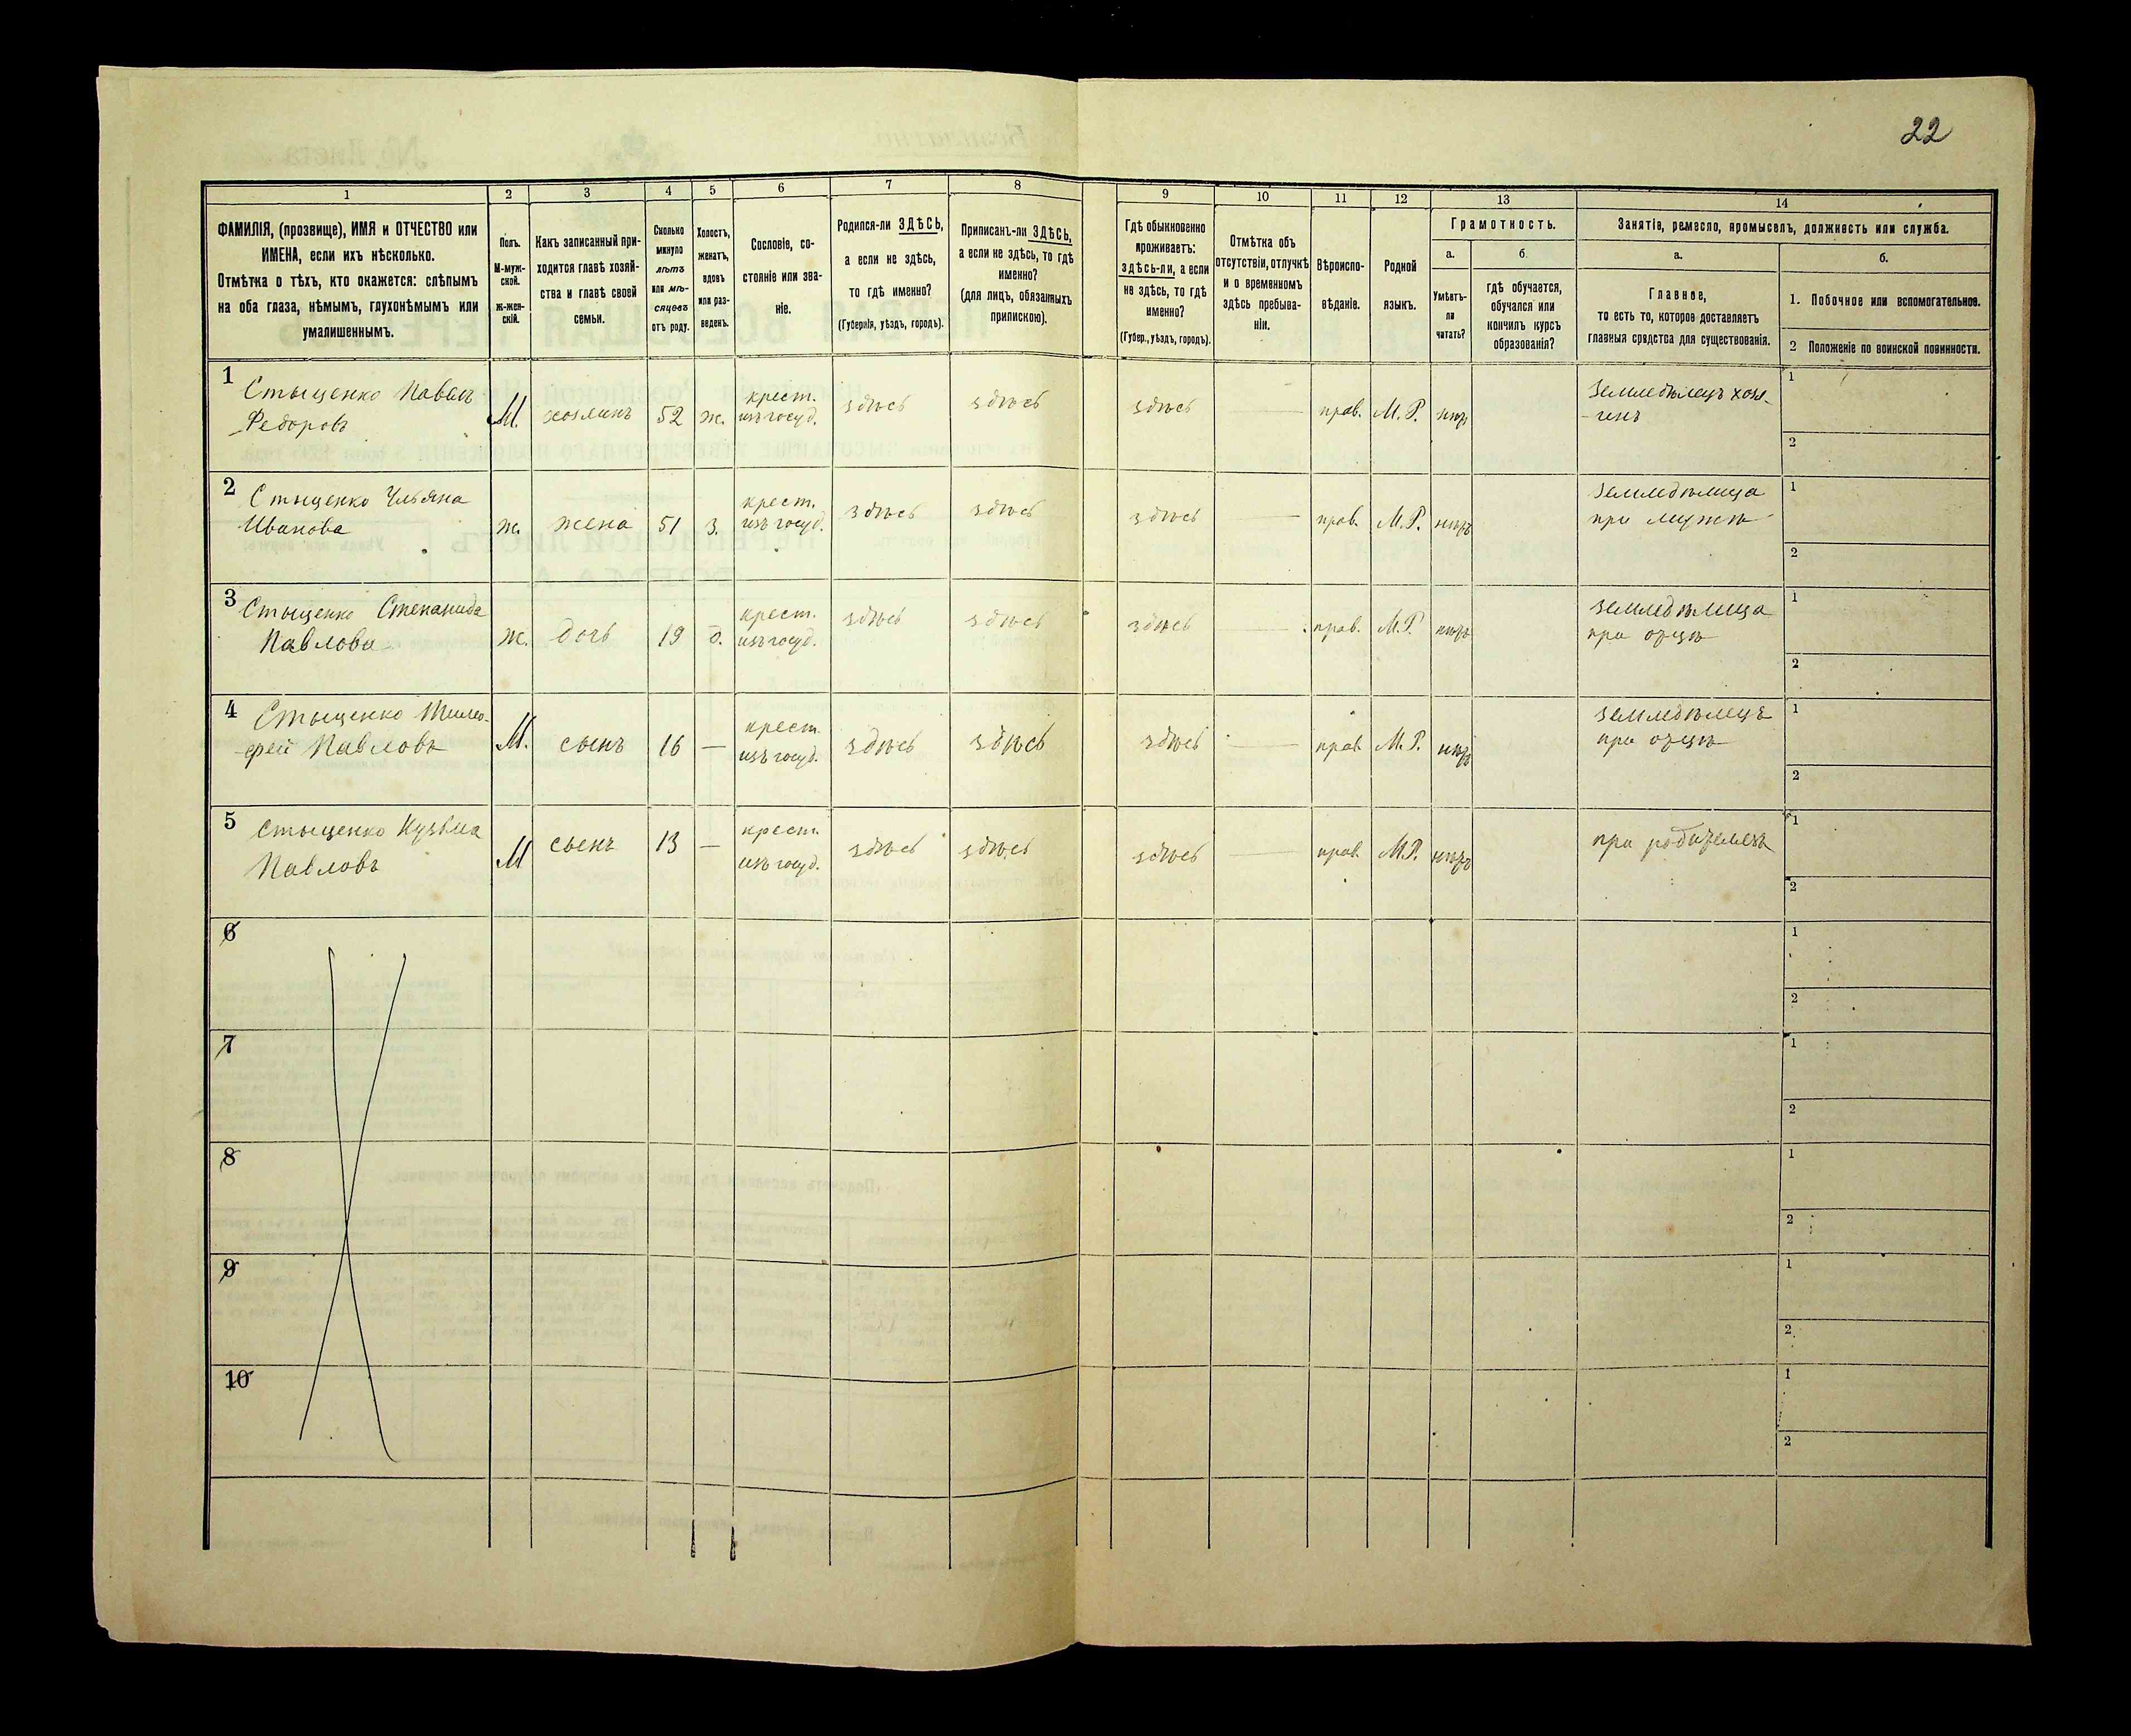 22
1 2 3 4 5 6 7 8 9 10 11 12 13 14
ФАМИЛІЯ, (прозвище), ИМЯ и ОТЧЕСТВО или
ИМЕНА, если ихъ нѣсколько.
Отмѣтка о тѣхъ, кто окажется: слѣпымъ
на оба глаза, нѣмымъ, глухонѣмымъ или
умалишеннымъ.
Полъ.
М-муж-
ской.
Ж-жен-
скій.
Какъ записанный при-
ходится главѣ хозяй-
ства и главѣ своей
семьи.
Сколько
минуло
лѣтъ
или мѣ-
сяцевъ
отъ роду.
Холостъ,
женатъ,
вдовъ
или раз-
веденъ.
Сословіе, со-
стояніе или зва-
ніе.
Родился-ли ЗДѢСЬ,
а если не здѣсь,
то гдѣ именно?
(Губернія, уѣздъ, городъ).
Приписанъ-ли ЗДѢСЬ,
а если не здѣсь, то гдѣ
именно?
(для лицъ, обязанныхъ
припискою).
Гдѣ обыкновенно
проживаетъ:
здѣсь-ли, а если
не здѣсь, то гдѣ
именно?
(Губер., уѣздъ, городъ).
Отмѣтка объ
отсутствіи, отлучкѣ
и о временномъ
здѣсь пребыва-
ніи.
Вѣроиспо-
вѣданіе.
Родной
языкъ.
Грамотность.
а.
Умѣетъ-
ли
читать?
б.
гдѣ обучается,
обучался или
кончилъ курсъ
образованія?
Занятіе, ремесло, промыселъ, должность или служба.
а.
Главное,
то есть то, которое доставляетъ
главныя средства для существованія.
б.
1. Побочное или вспомогательное.
2 Положеніе по воинской повинности.
1 Стыценко Павелъ
Федоровъ
М. хозяинъ 52 ж. крест.
изъ госуд. здѣсь здѣсь здѣсь — прав. М. Р. нѣтъ
Земледѣлецъ хозя-
инъ
1
2
2 Стыценко Ульяна
Иванова
ж. жена 51 з. крест.
изъ госуд. здѣсь здѣсь здѣсь — прав. М. Р. нѣтъ
земледѣлица
при мужѣ
1
2
3 Стыценко Степанида
Павлова
ж. дочь 19 д. крест.
изъ госуд. здѣсь здѣсь здѣсь — прав. М. Р. нѣтъ
земледѣлица
при отцѣ
1
2
4 Стыценко Тимо-
фей Павловъ
М. сынъ 16 — крест.
изъ госуд. здѣсь здѣсь здѣсь — прав. М. Р. нѣтъ
земледѣлецъ
при отцѣ
1
2
5 Стыценко Кузьма
Павловъ
М сынъ 13 — крест.
изъ госуд. здѣсь здѣсь здѣсь — прав. М. Р. нѣтъ
при родителяхъ
1
2
6
1
2
7
1
2
8
1
2
9
1
2
10
1
2